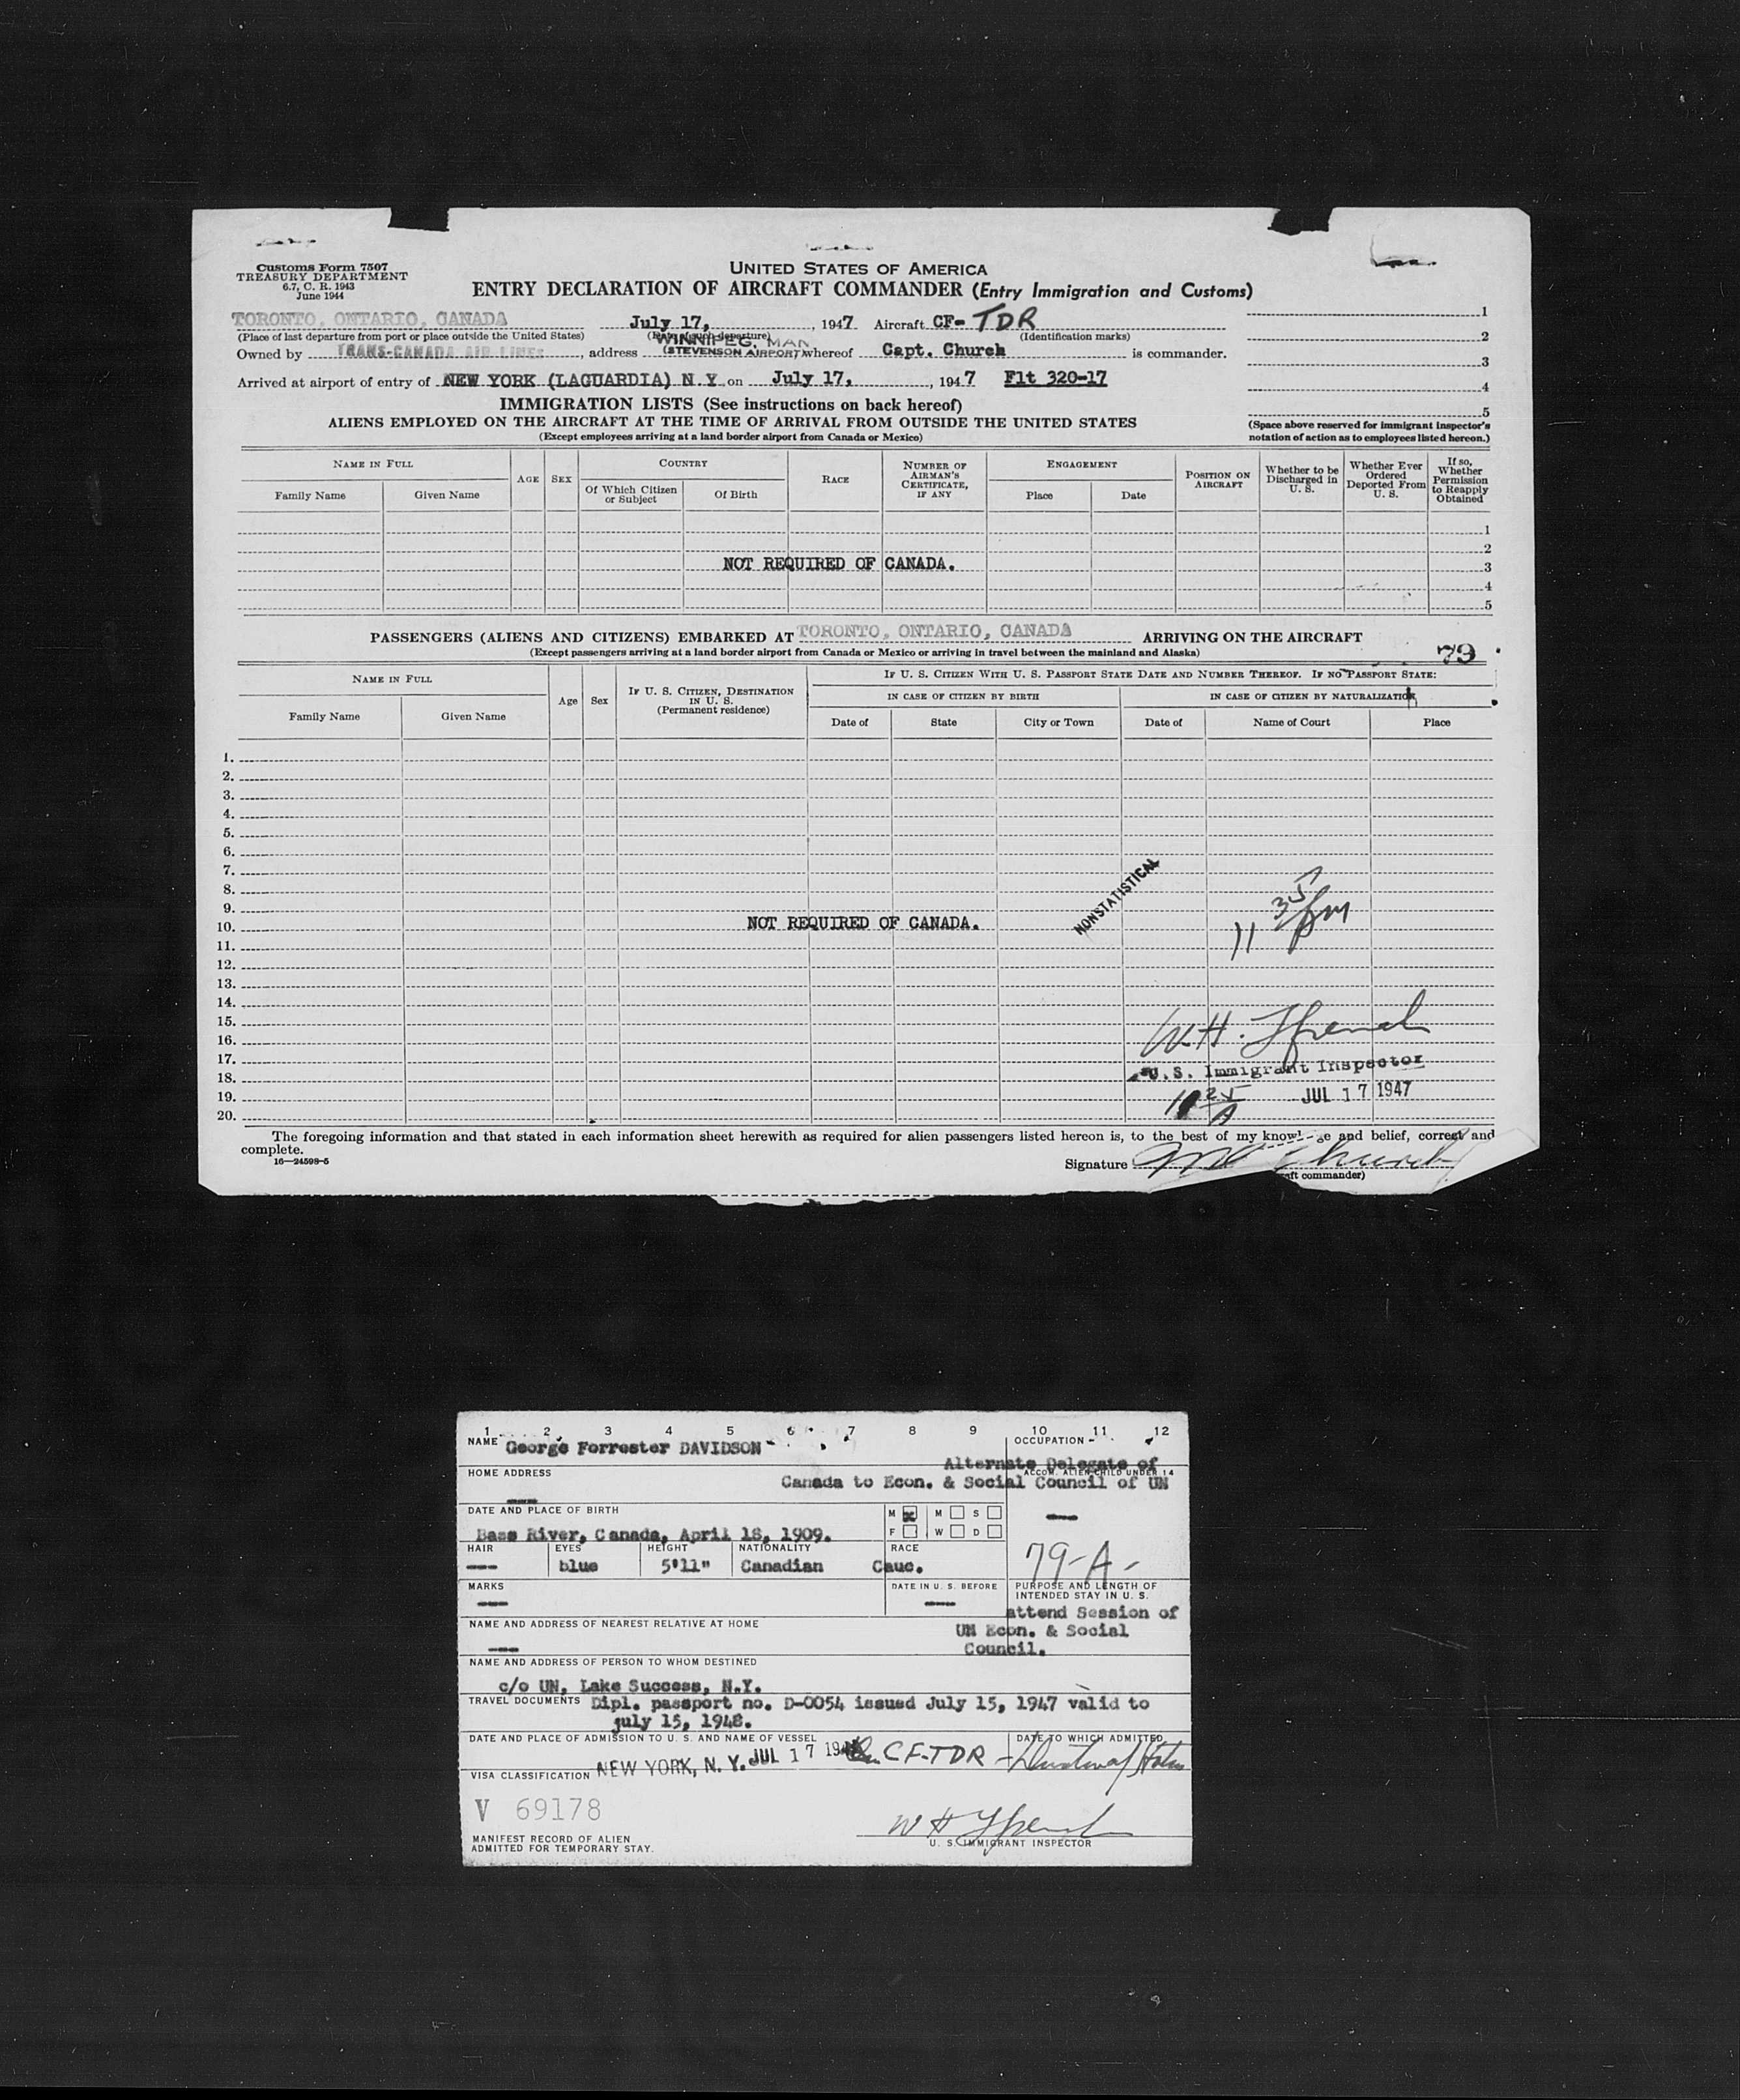 Customs Form 7507
TREASURY DEPARTMENT
6.7, C. R. 1943
June 1944
UNITED STATES OF AMERICA
ENTRY DECLARATION OF AIRCRAFT COMMANDER (Entry Immigration and Customs)
TORONTO, ONTARIO, CANADA July 17, , 1947 Aircraft CF- TDR
(Place of last departure from port or place outside the United States) (Date of such departure) (Identification marks)
WINNIPEG, MAN
Owned by TRANS-CANADA AIR LINES , address (STEVENSON AIRPORT) whereof Capt. Church is commander.
Arrived at airport of entry of NEW YORK (LAGUARDIA) N Y on July 17, , 1947 Flt 320-17
1
2
3
4
5
(Space above reserved for immigrant inspector's
notation of action as to employees listed hereon.)
IMMIGRATION LISTS (See instructions on back hereof)
ALIENS EMPLOYED ON THE AIRCRAFT AT THE TIME OF ARRIVAL FROM OUTSIDE THE UNITED STATES
(Except employees arriving at a land border airport from Canada or Mexico)
NAME IN FULL
Family Name
Given Name
AGE
SEX
COUNTRY
Of Which Citizen
or Subject
Of Birth
RACE
NUMBER OF
AIRMAN'S
CERTIFICATE,
IF ANY
ENGAGEMENT
Place
Date
POSITION ON
AIRCRAFT
Whether to be
Discharged in
U. S.
Whether Ever
Ordered
Deported From
U. S.
If so,
Whether
Permission
to Reapply
Obtained
1
2
NOT REQUIRED OF CANADA.
3
4
5
PASSENGERS (ALIENS AND CITIZENS) EMBARKED AT TORONTO, ONTARIO, CANADA ARRIVING ON THE AIRCRAFT
(Except passengers arriving at a land border airport from Canada or Mexico or arriving in travel between the mainland and Alaska)
79
NAME IN FULL
Family Name
Given Name
Age
Sex
IF U. S. CITIZEN, DESTINATION
IN U. S.
(Permanent residence)
IF U. S. CITIZEN WITH U. S. PASSPORT STATE DATE AND NUMBER THEREOF. IF NO PASSPORT STATE:
IN CASE OF CITIZEN BY BIRTH
Date of
State
City or Town
IN CASE OF CITIZEN BY NATURALIZATION
Date of
Name of Court
Place
1.
2.
3.
4.
5.
6.
7.
8.
9.
10.
11.
12.
13.
14.
15.
16.
17.
18.
19.
20.
NONSTATISTICAL
NOT REQUIRED OF CANADA.
11 35 pm
W.H.
U.S. Immigrant Inspector
10 25 A JUL 17 1947
The foregoing information and that stated in each information sheet herewith as required for alien passengers listed hereon is, to the best of my knowl ge and belief, correct and
complete.
16—24598-5
Signature Church
aft commander)
1 2 3 4 5 6 7 8 9 10 11 12
NAME George Forrester DAVIDSON
OCCUPATION
Alternate Delegate of
Canada to Econ. & Social Council of UN
HOME ADDRESS
ACCOM. ALIEN CHILD UNDER 14
DATE AND PLACE OF BIRTH
Bass River, Canada, April 18, 1909.
M x M S
F W D
HAIR EYES HEIGHT NATIONALITY RACE
--- blue 5'11" Canadian Cauc.
79-A-
MARKS
DATE IN U. S. BEFORE
PURPOSE AND LENGTH OF
INTENDED STAY IN U. S.
attend Session of
UN Econ. & Social
Council.
NAME AND ADDRESS OF NEAREST RELATIVE AT HOME
NAME AND ADDRESS OF PERSON TO WHOM DESTINED
c/o UN, Lake Success, N.Y.
TRAVEL DOCUMENTS Dipl. passport no. D-0054 issued July 15, 1947 valid to
july 15, 1948.
DATE AND PLACE OF ADMISSION TO U. S. AND NAME OF VESSEL
DATE TO WHICH ADMITTED
NEW YORK, N. Y. JUL 17 194 CF-TDR
VISA CLASSIFICATION
V 69178
W H
U. S. IMMIGRANT INSPECTOR
MANIFEST RECORD OF ALIEN
ADMITTED FOR TEMPORARY STAY.